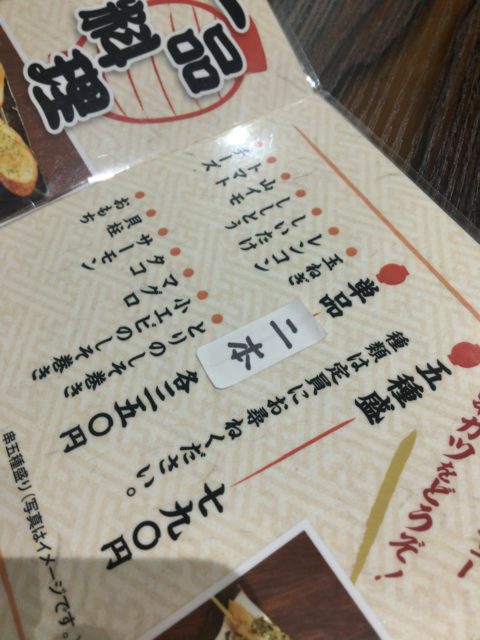 一品料理
カツをどうぞ!
五種盛
種類は定員にお尋ねください。
七九〇円
単品
二本
玉ねぎ
レンコン
しいたけ
ししとう
山イモ
トマト
チーズ
とりのしそ巻き
小エビのしそ巻き
マグロ
タコ
サーモン
貝柱
おもち
各三五〇円
串五種盛り(写真はイメージです。)